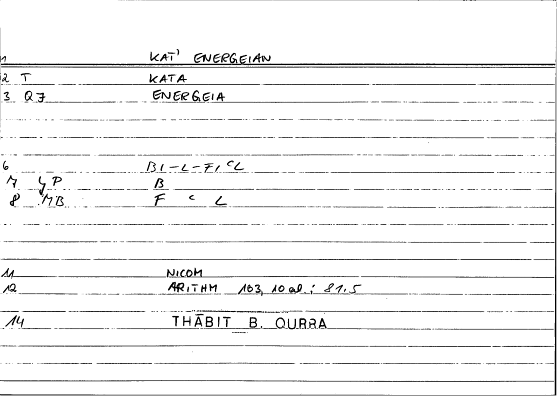 1 KAT' ENERGEIAN
2 T KATA
3 QJ ENERGEIA
6 BI-L-FIᶜL
7 YP B
8 MB F ᶜ L
11 NICOM
12 ARITHM 103, 10 al.: 81.5
14 THĀBIT B. QURRA